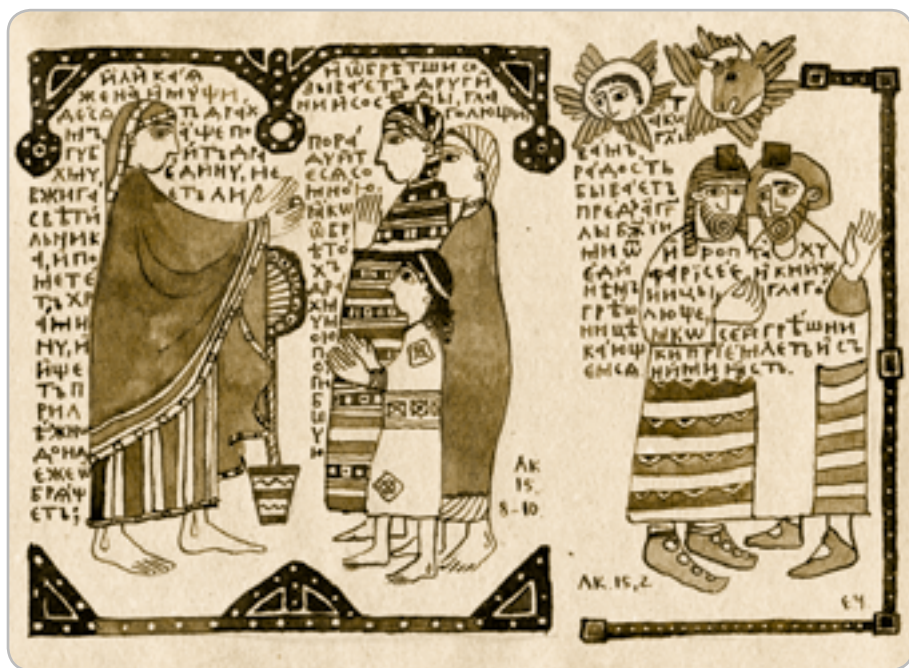 ИЛИ КАѦ
ЖЕНА ИМУЩИ
ДЕСѦТЬ ДРАХ
МЪ АЩЕ ПО
ГУБИТЪ ДРА
ХМУ ЕДИНУ, НЕ
ВЖИГАЕТЪ ЛИ
СВѢТИ
ЛЬНИК
А, И ПО
МЕТЕ
ТЪ ХР
АМИ
НУ, И
ИЩЕ
ТЪ П
РИЛ
ѢЖН
ДОНД
ЕЖЕ Ѡ
БРѦЩ
ЕТЪ;
И ѠБРѢТШИ СО
ЗЫВАЕТЪ ДРУГИ
НИ И СОСѢДЫ, ГЛА
ГОЛЮЩИ
ПОРА
ДУЙТ
ЕСѦ СО
МНОЮ:
ꙖКѠ
ѠБР
ѢТО
ХЪ
ДРА
ХМУ
ПО
ГИ
БШУ
Ю
ЛК
15,
8-10.
ТАКѠ ГЛЮ
ВАМЪ
РАДОСТЬ
БЫВАЕТЪ
ПРЕД АГГ
ЛЫ БЖІИ
МИ Ѡ
ЕДИ
НѢМЪ
ГРѢШ
НИЦѢ
КАЮЩ
ЕМСѦ
И РОПТАХУ
ФАРІСЕЕ И КНИЖ
НИЦЫ, ГЛАГО
ЛЮЩЕ,
ꙖКѠ СЕЙ ГРѢШНИ
КИ ПРІЕМЛЕТЪ И СЪ
НИМИ ꙖСТЬ.
ЛК. 15, 2
Е.Ч.